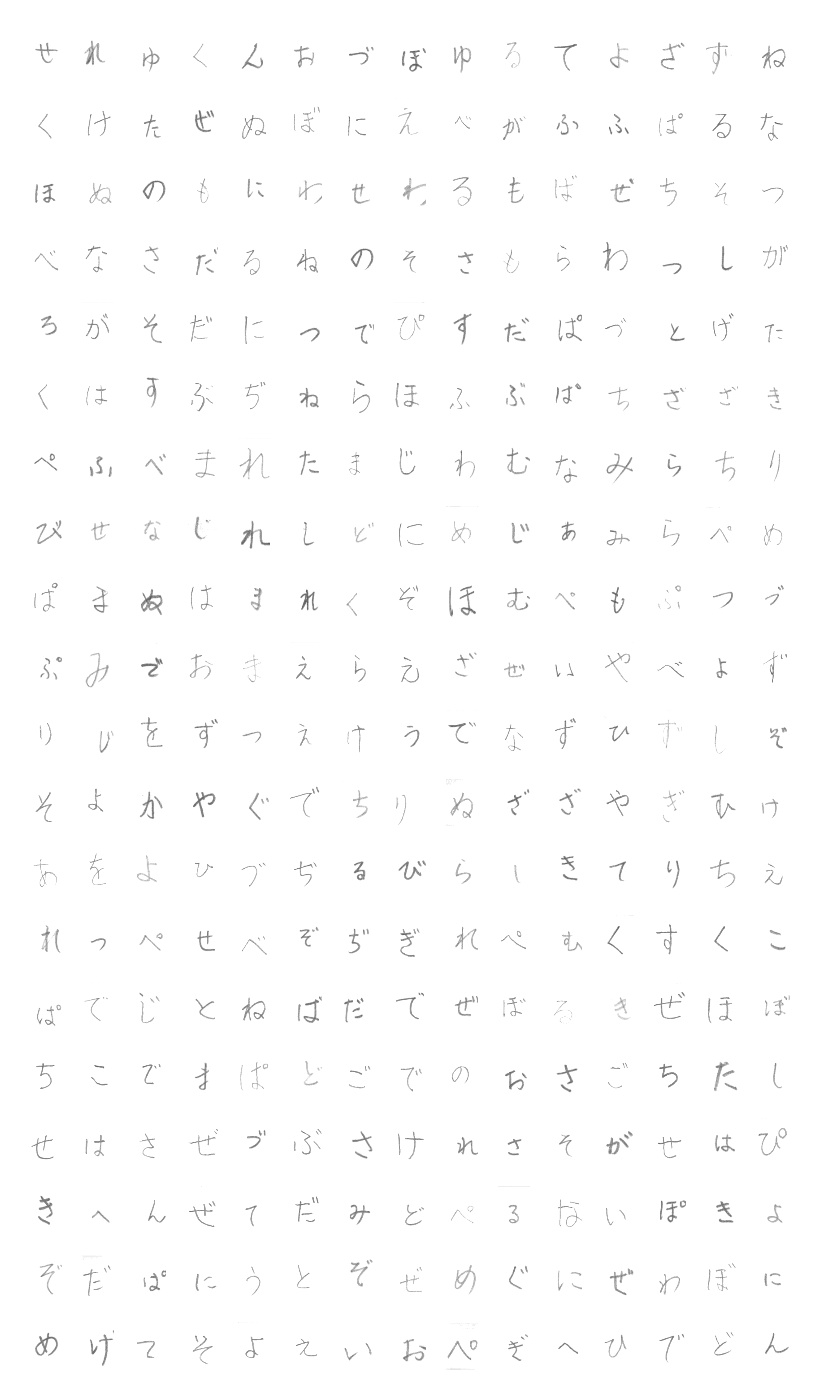 せれゅくんおづぼゆるてよざずね
くけたぜぬぼにえべがふふぱるな
ほぬのもにわせわるもばぜちそつ
べなさだるねのそさもらわっしが
ろがそだにつでぴすだぱづとげた
くはすぶぢねらほふぶぱちざざき
ぺふべまれたまじわむなみらちり
びせなじれしどにめじぁみらぺめ
ぱまぬはまれくぞほむぺもぷつづ
ぷみでおまえらえざぜいやべょず
りじをずつえけうでなずひずしぞ
そよかやぐでちりぬざざやぎむけ
あをよひづぢるびらしきてりちえ
れっぺせべぞぢぎれぺむくすくこ
ぱでじとねばだでぜぼるきぜほぼ
ちこでまぱどごでのおさごちたし
せはさぜづぶさけれさそがせはぴ
きへんぜてだみどぺるないぽきよ
ぞだぱにうとぞぜめぐにぜわぼに
めげてそよえいおぺぎへひでどん